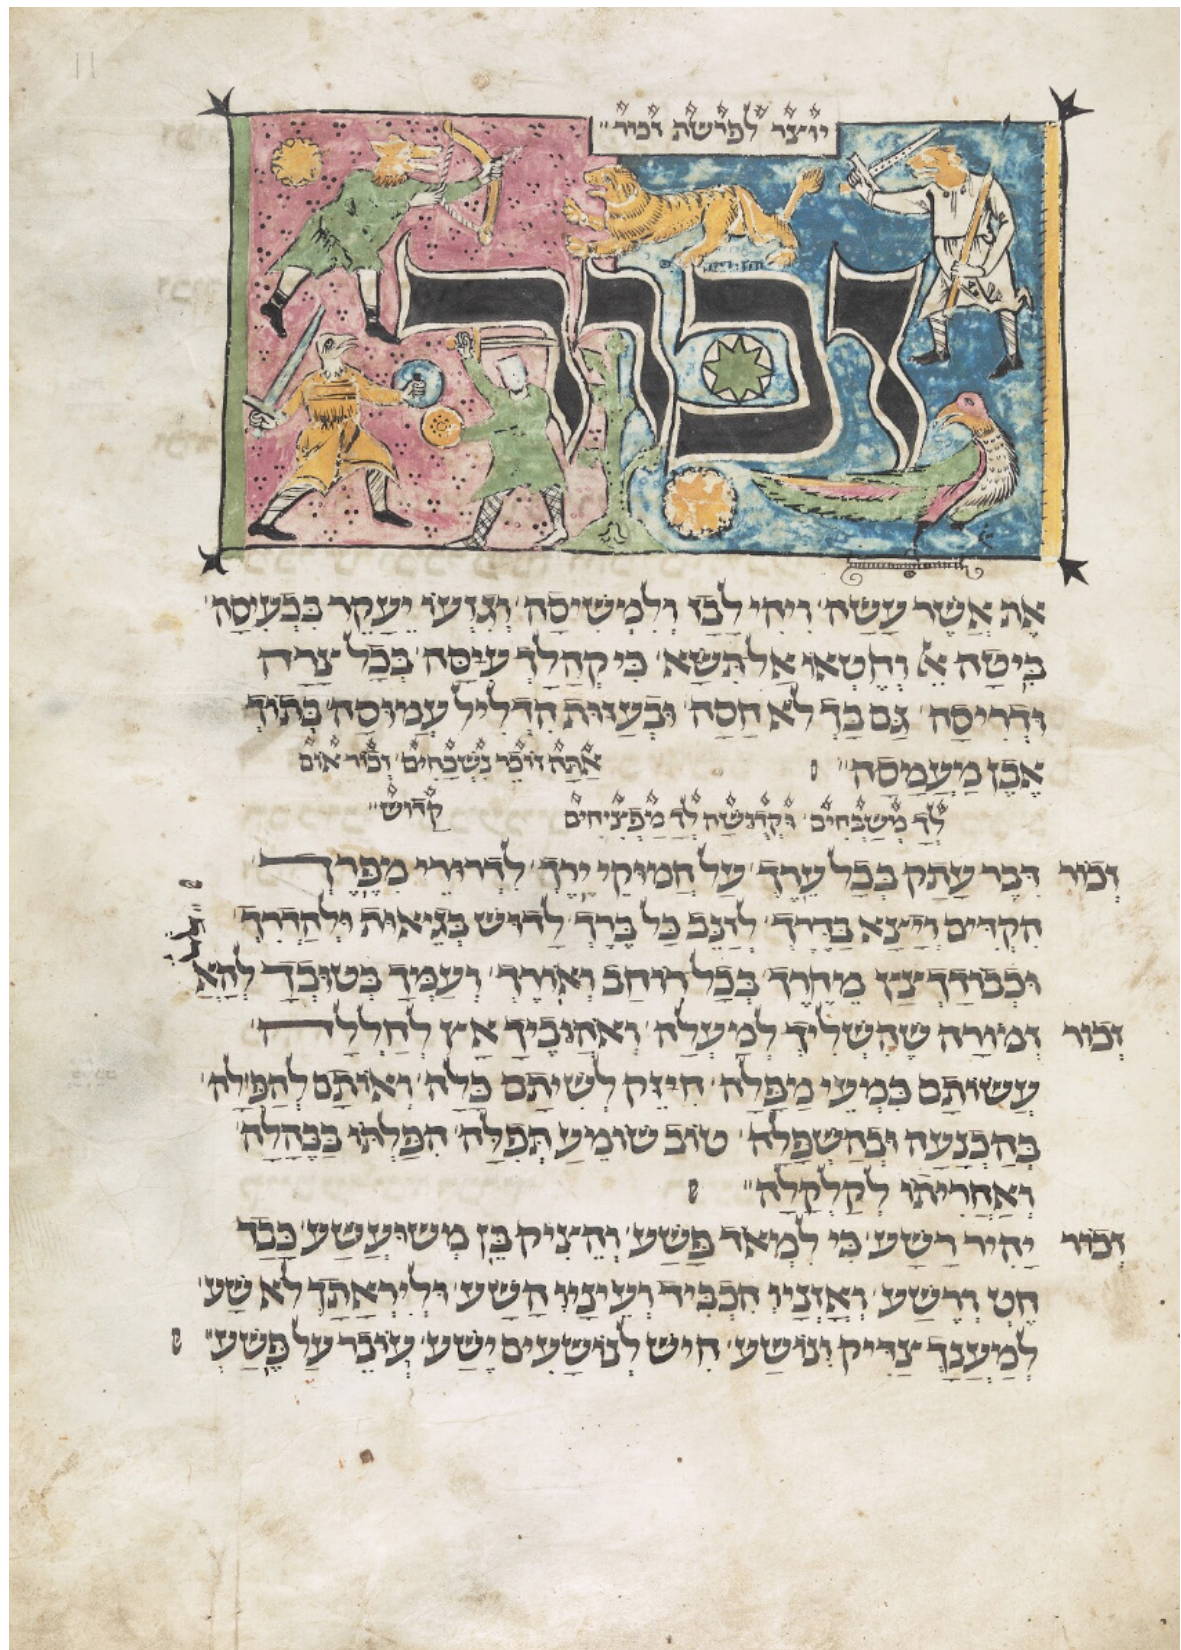 יוצר לפרשת זכור
זכור
אֶת אֲשֶׁר עָשָׂה וִיהִי לָבַז וְלִמְשִׁיסָה וְגִזְעוֹ יֵעָקֵר כְּבְעִיסָה
וְחֶטְאוֹ אַל תִּשָּׂא כִּי קְהָלְךָ עִיסָּה בְּכָל צָרָה
וּדְרִיסָה גַּם בָּךְ לֹא חָסָה וּבְעֵדוּת הִדְלִיל עֲמוּסָה בְּתוֹךְ
אֶבֶן מַעֲמָסָה אַתָּה זוֹכֵר נִשְׁכָּחִים זְכוֹר אוֹם
לְךָ מְשַׁבְּחִים וּקְדֻשָּׁה לְךָ מַפְצִיחִים קָדוֹשׁ
זְכוֹר דִּבֶּר עָתָק בְּכָל עֵרֶךְ עַל חֲמוּקֵי יֶרֶךְ לִדְרוּרֵי מִפֶּרֶךְ
הִקְדִּים וְיָצָא בַדֶּרֶךְ לְזַנֵּב כָּל בֶּרֶךְ לָדוּשׁ בְּגֵיאוּת וּלְהַדְרֵךְ
וּכְבוֹדְךָ יָצַץ מֵחָרֶךְ בְּכָל רוֹחַב וְאוֹרֶךְ וְעַמְּךָ בְּטוּבְךָ לְהָאַ
זְכוֹר זְמוֹרָה שֶׁהִשְׁלִיךְ לְמַעְלָה וְאֹהֲבֶיךָ אָץ לְחַלְּלָה
עֲשׂוֹתָם כִּמְעֵי מַפָּלָה חִינֵּק לְשִׁיתָם כָּלָה וְאוֹתָם לְהַפִּילָה
בְּהַכְנָעָה וּבְהַשְׁפָּלָה טוֹב שׁוֹמֵעַ תְּפִלָּה הִפַּלְתּוֹ בַּבֶּהָלָה
וְאַחֲרִיתוֹ לְקַלְקָלָה
זְכוֹר יָהִיר רָשָׁע כִּי לִמְאֹד פָּשַׁע וְהֵצִיק בֶּן מְשׁוּעֲשָׁע כָּבַד
חֵטְ וְרֶשַׁע וְאָזְנָיו הִכְבִּיד וְעֵינָיו הָשַׁע וּלְיִרְאָתְךָ לֹא שָׁע
לְמַעֲנָךְ צַדִּיק וְנוֹשָׁע חִישׁ לְנוֹשָׁעִים יֶשַׁע עוֹבֵר עַל פֶּשַׁע